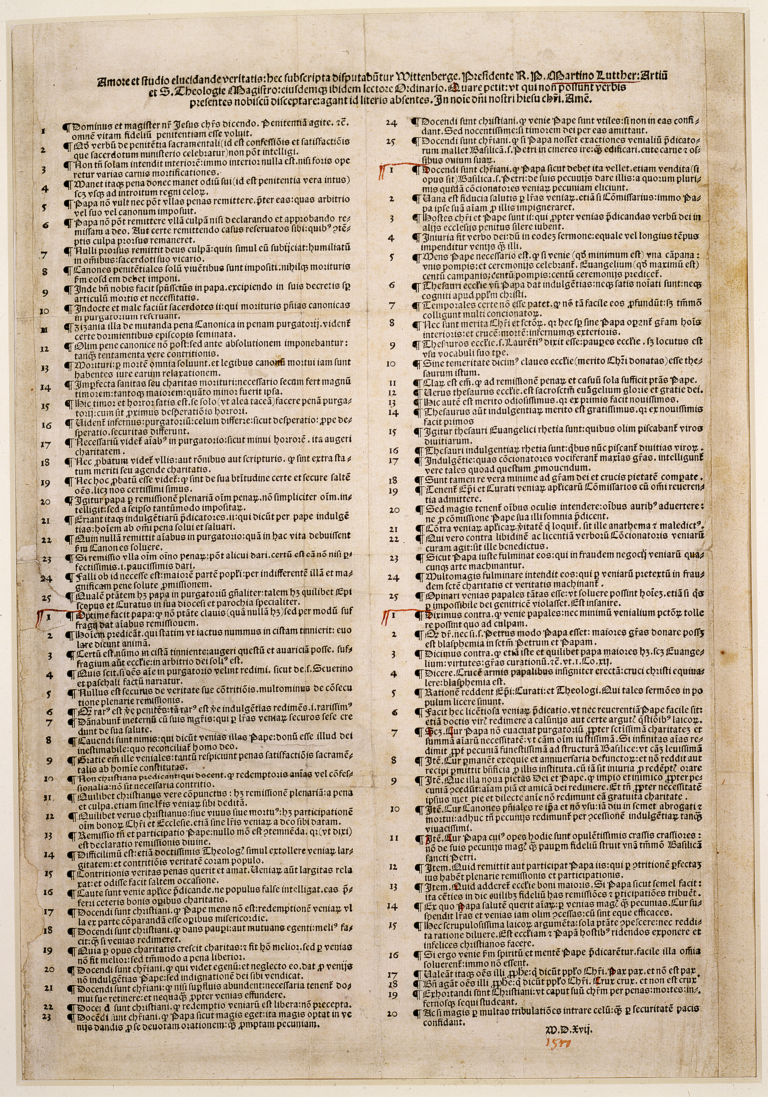 Amore et studio elucidande veritatis: hec subscripta disputabūtur Wittenberge. Presidente R. P. Martino Lutther: Artiū
et S. Theologie Magistro: eiusdemqꝫ ibidem lectore Ordinario. Quare petit: vt qui non possunt verbis
presentes nobiscū disceptare: agant id literis absentes. In noīe dn̄i nostri hiesu chr̄i. Amē.
1 ¶ Dominus et magister nr̄ Jesus chr̄s dicendo. Penitentiā agite. ꝛc̄.
omnē vitam fideliū penitentiam esse voluit.
2 ¶ Qd̄ verbū de penitētia sacramentali (id est confessiōis et satisfactiōis
que sacerdotum ministerio celebratur) non pōt intelligi.
3 ¶ Non tn̄ solam intendit interiorē: immo interior nulla est. nisi foris ope
retur varias carnis mortificationes.
4 ¶ Manet itaqꝫ pena donec manet odiū sui (id est penitentia vera intus)
scꝫ vsqꝫ ad introitum regni celoꝝ.
5 ¶ Papa nō vult nec pōt vllas penas remittere. p̄ter eas: quas arbitrio
vel suo vel canonum imposuit.
6 ¶ Papa nō pōt remittere vllā culpā nisi declarando et approbando re
missam a deo. Aut certe remittendo casus reseruatos sibi: quibꝰ ꝯtē-
ptis culpa prosus remaneret.
7 ¶ Nulli prosius remittit deus culpā: quin simul eū subijciat: humiliatū
in omnibus: sacerdoti suo vicario.
8 ¶ Canones penitētiales solū viuētibus sunt impositi. nihilqꝫ morituris
fm̄ eosdem debet imponi.
9 ¶ Inde bn̄ nobis facit spūssctūs in papa. excipiendo in suis decretis sp̄
articulū mortis et necessitatis.
10 ¶ Indocte et male faciūt sacerdotes ii: qui morituris pn̄ias canonicas
in purgatorium reseruant.
11 ¶ Zizania illa de mutanda pena Canonica in penam purgatorij. vident̄
certe dormientibus episcopis seminata.
12 ¶ Olim pene canonice nō post: sed ante absolutionem imponebantur:
tanqꝫ tentamenta vere contritionis.
13 ¶ Morituri: p mortē omnia soluunt. et legibus canonū mortui iam sunt
habentes iure earun relaxationem.
14 ¶ Imp̄fecta sanitas seu charitas morituri: necessario secum fert magnū
timorem: tantoqꝫ maiorem: quāto minor fuerit ipsa.
15 ¶ Hic timor et horror satis est. se solo (vt alia taceā) facere penā purga-
torij: cum sit ꝓximus desperatiōis horrori.
16 ¶ Vident̄ infernus: purgatoriū: celum differre: sicut desperatio: ꝓpe de-
speratio. securitas differunt.
17 ¶ Necessariū videt̄ aīabꝰ in purgatorio: sicut minui horrorē. ita augeri
charitatem.
18 ¶ Nec ꝓbatum videt̄ vllis: aut rōnibus aut scripturis. qꝫ sint extra sta-
tum meriti seu agende charitatis.
19 ¶ Nec hoc ꝓbatū esse videt̄: qꝫ sint de sua btītudine certe et secure saltē
oēs. licꝫ nos certissimi simus.
20 ¶ Igitur papa p remissionē plenariā oīm penaꝝ. nō simpliciter oīm. in-
telligit: sed a seipso tantūmodo impositaꝝ.
21 ¶ Errant itaqꝫ indulgētiaꝝ p̄dicatores. ii: qui dicūt per pape indulgē
tias: hoīem ab omi pena solui et saluari.
22 ¶ Quin nullā remittit aīabus in purgatorio: quā in hac vita debuissent
fm̄ Canones soluere.
23 ¶ Si remissio vlla oīm oīno penaꝝ: pōt alicui dari. certū est eā nō nisi p̄
fectissimis. i. paucissimis dari.
24 ¶ Falli ob id necesse est: maiorē partē popli: per indifferentē illā et ma-
gnificam pene solute ꝓmissionem.
25 ¶ Qualē ptātem hꝫ papa in purgatoriū gn̄aliter: talem hꝫ quilibet Epi
scopus et Curatus in sua diocesi et parochia specialiter.
1 ¶ Optime facit papa: qꝫ nō ptāte clauis (quā nullā hꝫ) sed per modū suf
fragij dat aīabus remissionem.
2 ¶ Hoīem predicāt. qui statim vt iactus nummus in cistam tinnierit: euo
lare dicunt animā.
3 ¶ Certū est. nūmo in cistā tinniente: augeri questū et auariciā posse. suf-
fragium aūt eccl̄ie: in arbitrio dei solꝰ est.
4 ¶ Quis scit. si oēs aīe in purgatorio velint redimi. sicut de s. Seuerino
et paschali factū narratur.
5 ¶ Nullus est securus de veritate sue cōtritiōis. multominus de cōsecu
tione plenarie remissionis.
6 ¶ Qꝫ rarꝰ est v̄e penitēs: tā rarꝰ est v̄e indulgētias redimēs. i. rarissimꝰ
7 ¶ Dānabunt̄ inetern̄ū cū suis mgr̄is: qui p lr̄as veniaꝝ securos sese cre
dunt de sua salute.
8 ¶ Cauendi sunt nimis: qui dicūt venias illas Pape: donū esse illud dei
inestimabile: quo reconciliat̄ homo deo.
9 ¶ Gratie em̄ ille veniales: tantū respiciunt penas satisfactiōis sacramē-
talis ab homīe constitutas.
10 ¶ Non christiana predicant: qui docent. qꝫ redemptoris aīas vel cōfes-
sionalia: nō sit necessaria contritio.
11 ¶ Quilibet christianus vere cōpunctus: hꝫ remissionē plenariā: a pena
et culpa. etiam sine lr̄is veniaꝝ sibi debitā.
12 ¶ Quilibet verus christianus: siue viuus siue mortuꝰ: hꝫ participationē
oīm bonoꝝ Chr̄i et Ecclesie. etiā sine lr̄is veniaꝝ a deo sibi datam.
13 ¶ Remissio tn̄ et participatio Pape: nullo mō est ꝯtemnēda. qꝛ (vt dixi)
est declaratio remissionis diuine.
14 ¶ Difficilimū est: etiā doctissimis Theologꝭ simul extollere veniaꝝ lar-
gitatem: et contritiōis veritatē coram populo.
15 ¶ Contritionis veritas penas querit et amat. Veniaꝝ aūt largitas rela
xat: et odisse facit saltem occasione.
16 ¶ Caute sunt venie aplice p̄dicande. ne populus false intelligat. eas p̄-
ferri ceteris bonis opibus charitatis.
17 ¶ Docendi sunt christiani. qꝫ Pape mens nō est: redemptionē veniaꝝ vl
la ex parte cōparandā esse opibus misericordie.
18 ¶ Docendi sunt christiani. qꝫ dans paupi: aut mutuans egenti: meliꝰ fa-
cit: qꝫ si venias redimeret.
19 ¶ Quia p opus charitatis crescit charitas: ⁊ fit hō melior. sed p venias
nō fit melior: sed tm̄modo a pena liberior.
20 ¶ Docendi sunt chr̄iani. qꝫ qui videt egenū: et neglecto eo. dat ꝓ venijs
nō indulgētias Pape: sed indignationē dei sibi vendicat.
21 ¶ Docendi sunt chr̄iani. qꝫ nisi supfluis abundent: necessaria tenent̄ do-
mui sue retinere: et nequaqꝫ ꝓpter venias effundere.
22 ¶ Docēdi sunt christiani. qꝫ redemptio veniaꝝ est libera: nō p̄cepta.
23 ¶ Docēdi sunt chr̄iani. qꝫ Papa sicut magis eget: ita magis optat in ve
nijs dandis ꝓ se deuotam orationem: qꝫ ꝓmptam pecuniam.
24 ¶ Docendi sunt christiani. qꝫ venie Pape sunt vtiles: si non in eas confi-
dant. Sed nocentissime: si timorem dei per eas amittant.
25 ¶ Docendi sunt chr̄iani. qꝫ si Papa nosset exactiones venialiū p̄dicato-
rum mallet Basilicā. s. Petri in cineres ire: qꝫ edificari. cute carne ⁊ os-
sibus ouium suaꝝ.
1 ¶ Docendi sunt chr̄iani. qꝫ Papa sicut debet ita vellet. etiam vendita (si
opus sit) Basilica. s. Petri: de suis pecunijs dare illis: a quorum pluri-
mis quidā cōcionatores veniaꝝ pecuniam eliciunt.
2 ¶ Uana est fiducia salutis p lr̄as veniaꝝ. etiā si Cōmissarius: immo Pa-
pa ipse suā aīam ꝓ illis impigneraret.
3 ¶ Hostes chr̄i et Pape sunt ii: qui ꝓpter venias p̄dicandas verbū dei in
alijs ecclesijs penitus silere iubent.
4 ¶ Iniuria fit verbo dei: dū in eodeꝫ sermone: equale vel longius tēpus
impenditur venijs qꝫ illi.
5 ¶ Mens Pape necessario est. qꝫ si venie (qd̄ minimum est) vna cāpana:
vnis pompis: et ceremonijs celebrant̄. Euangelium (qd̄ maximū est)
centū campanis: centū pompis: centū ceremonijs predicet̄.
6 ¶ Thesauri eccl̄ie vn̄ Papa dat indulgētias: neqꝫ satis noīati sunt: neqꝫ
cogniti apud ppl̄m chr̄isti.
7 ¶ Temporales certe nō esse patet. qꝫ nō tā facile eos ꝓfundūt: sꝫ tm̄mō
colligunt multi concionatorum.
8 ¶ Nec sunt merita Chr̄i et sctōꝝ. qꝛ hec sp̄ sine Papa opant̄ gr̄am hoīs
interioris: et crucē: mortē: infernumqꝫ exterioris.
9 ¶ Thesauros eccl̄ie. s. Laurētiꝰ dixit esse: paupes eccl̄ie. sꝫ locutus est
vsu vocabuli suo tp̄e.
10 ¶ Sine temeritate dicimꝰ claues eccl̄ie (merito Chr̄i donatas) esse the-
saurum istum.
11 ¶ Claꝝ est em̄. qꝫ ad remissionē penaꝝ et casuū sola sufficit ptās Pape.
12 ¶ Uerus thesaurus eccl̄ie. est sacrosctm̄ euāgelium glorie et gratie dei.
13 ¶ Hic autē est merito odiosissimus. qꝛ ex primis facit nouissimos.
14 ¶ Thesaurus aūt indulgentiaꝝ merito est gratissimus. qꝛ ex nouissimis
facit primos
15 ¶ Igitur thesauri Euangelici rhetia sunt: quibus olim piscabant̄ viros
diuitiarum.
16 ¶ Thesauri indulgentiaꝝ rhetia sunt: qbus nūc piscant̄ diuitias viroꝝ.
17 ¶ Indulgētie: quas cōcionatores vociferant̄ maxīas gr̄as. intelligunt̄
vere tales quoad questum ꝓmouendum.
18 ¶ Sunt tamen re vera minime ad gr̄am dei et crucis pietatē compate.
19 ¶ Tenent̄ Epi et Curati veniaꝝ aplicaꝝ Cōmissarios cū omi reueren-
tia admittere.
20 ¶ Sed magis tenent̄ oībus oculis intendere: oībus auribꝰ aduertere:
ne ꝓ cōmissione Pape sua illi somnia predicent.
21 ¶ Cōtra veniaꝝ aplicaꝝ vītatē q̇ loquit̄. sit ille anathema ⁊ maledictꝰ.
22 ¶ Qui vero contra libidinē ac licentiā verboꝝ Cōcionatoris veniarū
curam agit: sit ille benedictus.
23 ¶ Sicut Papa iuste fulminat eos: qui in fraudem negocij veniarū qua-
cunqꝫ arte machinantur.
24 ¶ Multomagis fulminare intendit eos: qui p veniarū pretextū in frau-
dem sctē charitatis et veritatis machinant̄.
25 ¶ Opinari venias papales tātas esse: vt soluere possint hoīeꝫ. etiā si qͥs
p impossibile dei genitricē violasset. Est insanire.
1 ¶ Diximus contra. qꝫ venie papales: nec minimū venialium pctōꝝ tolle
re possint quo ad culpam.
2 ¶ Qd̄ dr̄. nec si. s. Petrus modo Papa esset: maiores gr̄as donare posset
est blasphemia in sctm̄ Petrum et Papam.
3 ¶ Dicimus contra. qꝫ etiā iste et quilibet papa maiores hꝫ. scꝫ Euange-
lium: virtutes: gr̄as curationū. ꝛc̄. vt. i. Co. xij.
4 ¶ Dicere. Crucē armis papalibus insigniter erectā: cruci christi equiua
lere: blasphemia est.
5 ¶ Rationē reddent Epi: Curati: et Theologi. Qui tales sermōes in po
pulum licere sinunt.
6 ¶ Facit hec licētiosa veniaꝝ p̄dicatio. vt nec reuerentiā Pape facile sit:
etiā doctis virꝭ redimere a calūnijs aut certe argutꝭ qōstiōibꝰ laicoꝝ.
7 ¶ Scꝫ. Cur Papa nō euacuat purgatoriū ꝓpter sctissimā charitateꝫ et
summā aīarū necessitatē: vt cām oīm iustissimā. Si infinitas aīas re-
dimit ꝓpt̄ pecuniā funestissimā ad structurā Basilice: vt cāꝫ leuissimā
8 ¶ Itē. Cur ꝓmanēt exequie et anniuersaria defunctoꝝ: et nō reddit aut
recipi pmittit bn̄ficia ꝓ illis instituta. cū iā sit iniuria ꝓ redēptꝭ orare
9 ¶ Itē. Que illa noua pietas Dei et Pape. qꝫ impio et inimico ꝓpter pe-
cuniā ꝯcedūt: aīam piā et amicā dei redimere. Et tn̄ ꝓpter necessitatē
ipsius met pie et dilecte aīe nō redimunt eā gratuita charitate.
10 ¶ Itē. Cur Canones pn̄iales re ip̄a et nō vsu: iā diu in semet abrogati ⁊
mortui: adhuc tn̄ pecunijs redimunt̄ per ꝯcessionē indulgētiaꝝ tanqꝫ
viuacissimi.
11 ¶ Itē. Cur Papa cuiꝰ opes hodie sunt opulētissimis crassis crassiores:
nō de suis pecunijs magꝭ qꝫ paupm̄ fideliū struit vnā tm̄mō Basilicā
sancti Petri.
12 ¶ Item. Quid remittit aut participat Papa iis: qui p ꝯtritionē p̄fectaꝫ
ius habēt plenarie remissionis et participationis.
13 ¶ Item. Quid adderet̄ eccl̄ie boni maioris. Si Papa sicut semel facit:
ita cēties in die cuilibꝫ fideliū has remissiōes ⁊ pticipatiōes tribuēt̄.
14 ¶ Ex quo Papa salutē querit aīaꝝ p venias magꝭ qꝫ pecunias. Cur su-
spendit lr̄as et venias iam olim ꝯcessas: cū sint eque efficaces.
15 ¶ Hec scrupulosissima laicoꝝ argumēta: sola ptāte ꝯpescere: nec reddi-
ta ratione diluere. Est eccl̄iam ⁊ Papā hostibꝰ ridendos exponere et
infelices christianos facere.
16 ¶ Si ergo venie fm̄ spiritū et mentē Pape p̄dicarēt̄ur. facile illa omnia
soluerent̄: immo nō essent.
17 ¶ Ualeāt itaqꝫ oēs illi ꝓphe: q̇ dicūt pplo Chr̄i. Pax pax. et nō est pax
18 ¶ Bn̄ agāt oēs illi ꝓphe: q̇ dicūt pplo Chr̄i. Crux crux. et non est crux
19 ¶ Exhortandi sunt Christiani: vt caput suū chr̄m per penas: mortes: in-
fernosqꝫ sequi studeant.
20 ¶ Ac si magis p multas tribulatiōes intrare celū: qꝫ p securitatē pacis
confidant.
M.D.Xvij.
1517